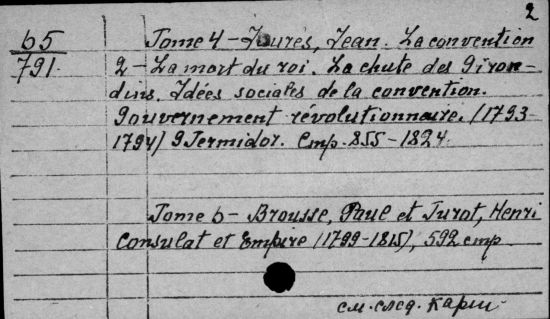 2
65
791.
Tome 4 - Jaurès, Jean. La convention
2 - La mort du roi. La chute des Giron-
dins. Idées sociales de la convention.
Gouvernement révolutionnaire. (1793-
1794) 9 Termidor. Стр. 855-1824.
Tome 6 - Brousse, Paul et Turot, Henri
Consulat et Empire (1799-1815), 592 стр.
см. след. карт.